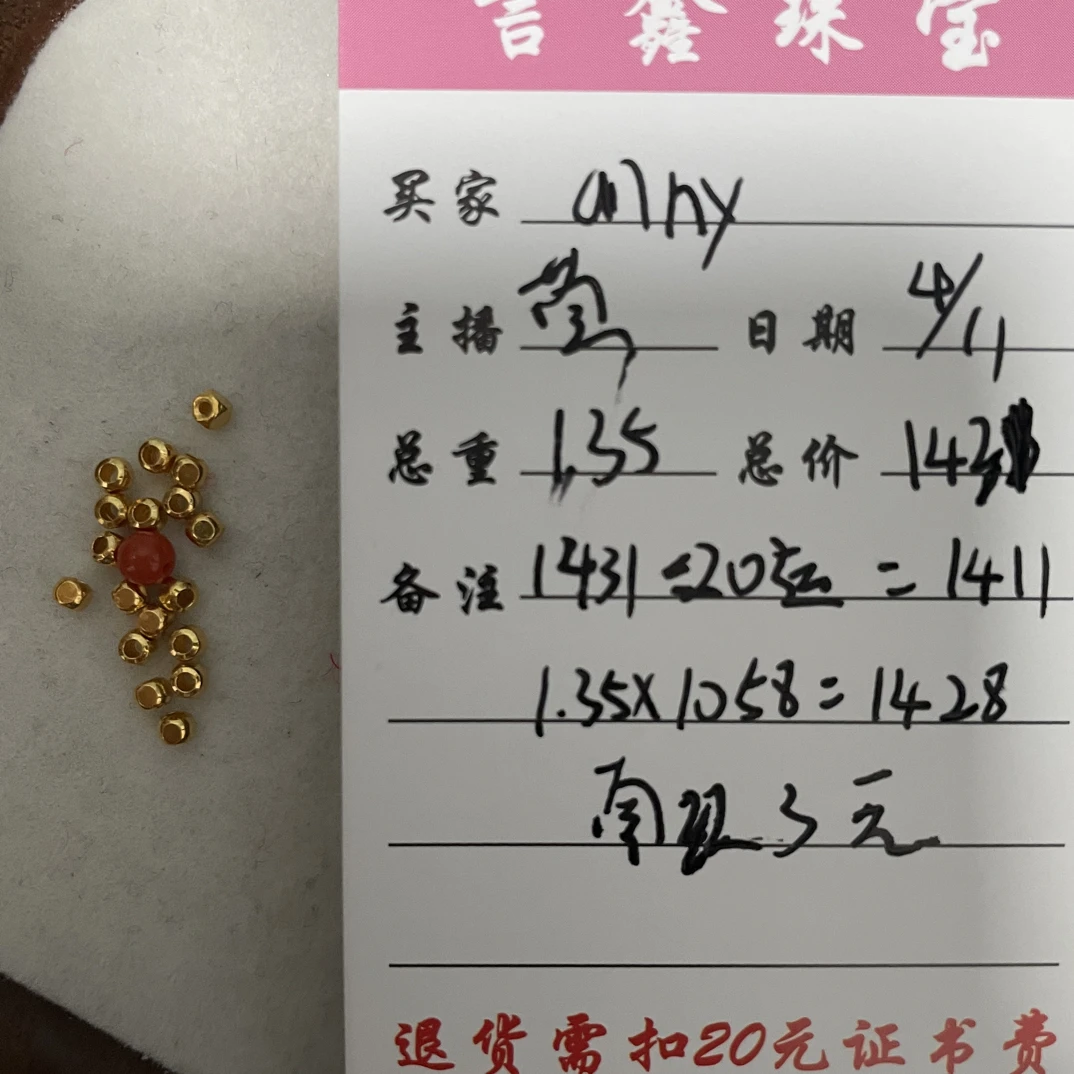 言鑫珠宝
买家
主播 日期 4/11
总重 1.35 总价 1431
备注 1431-20元 = 1411
1.35X1058=1428
南玛3元
退货需扣20元证书费